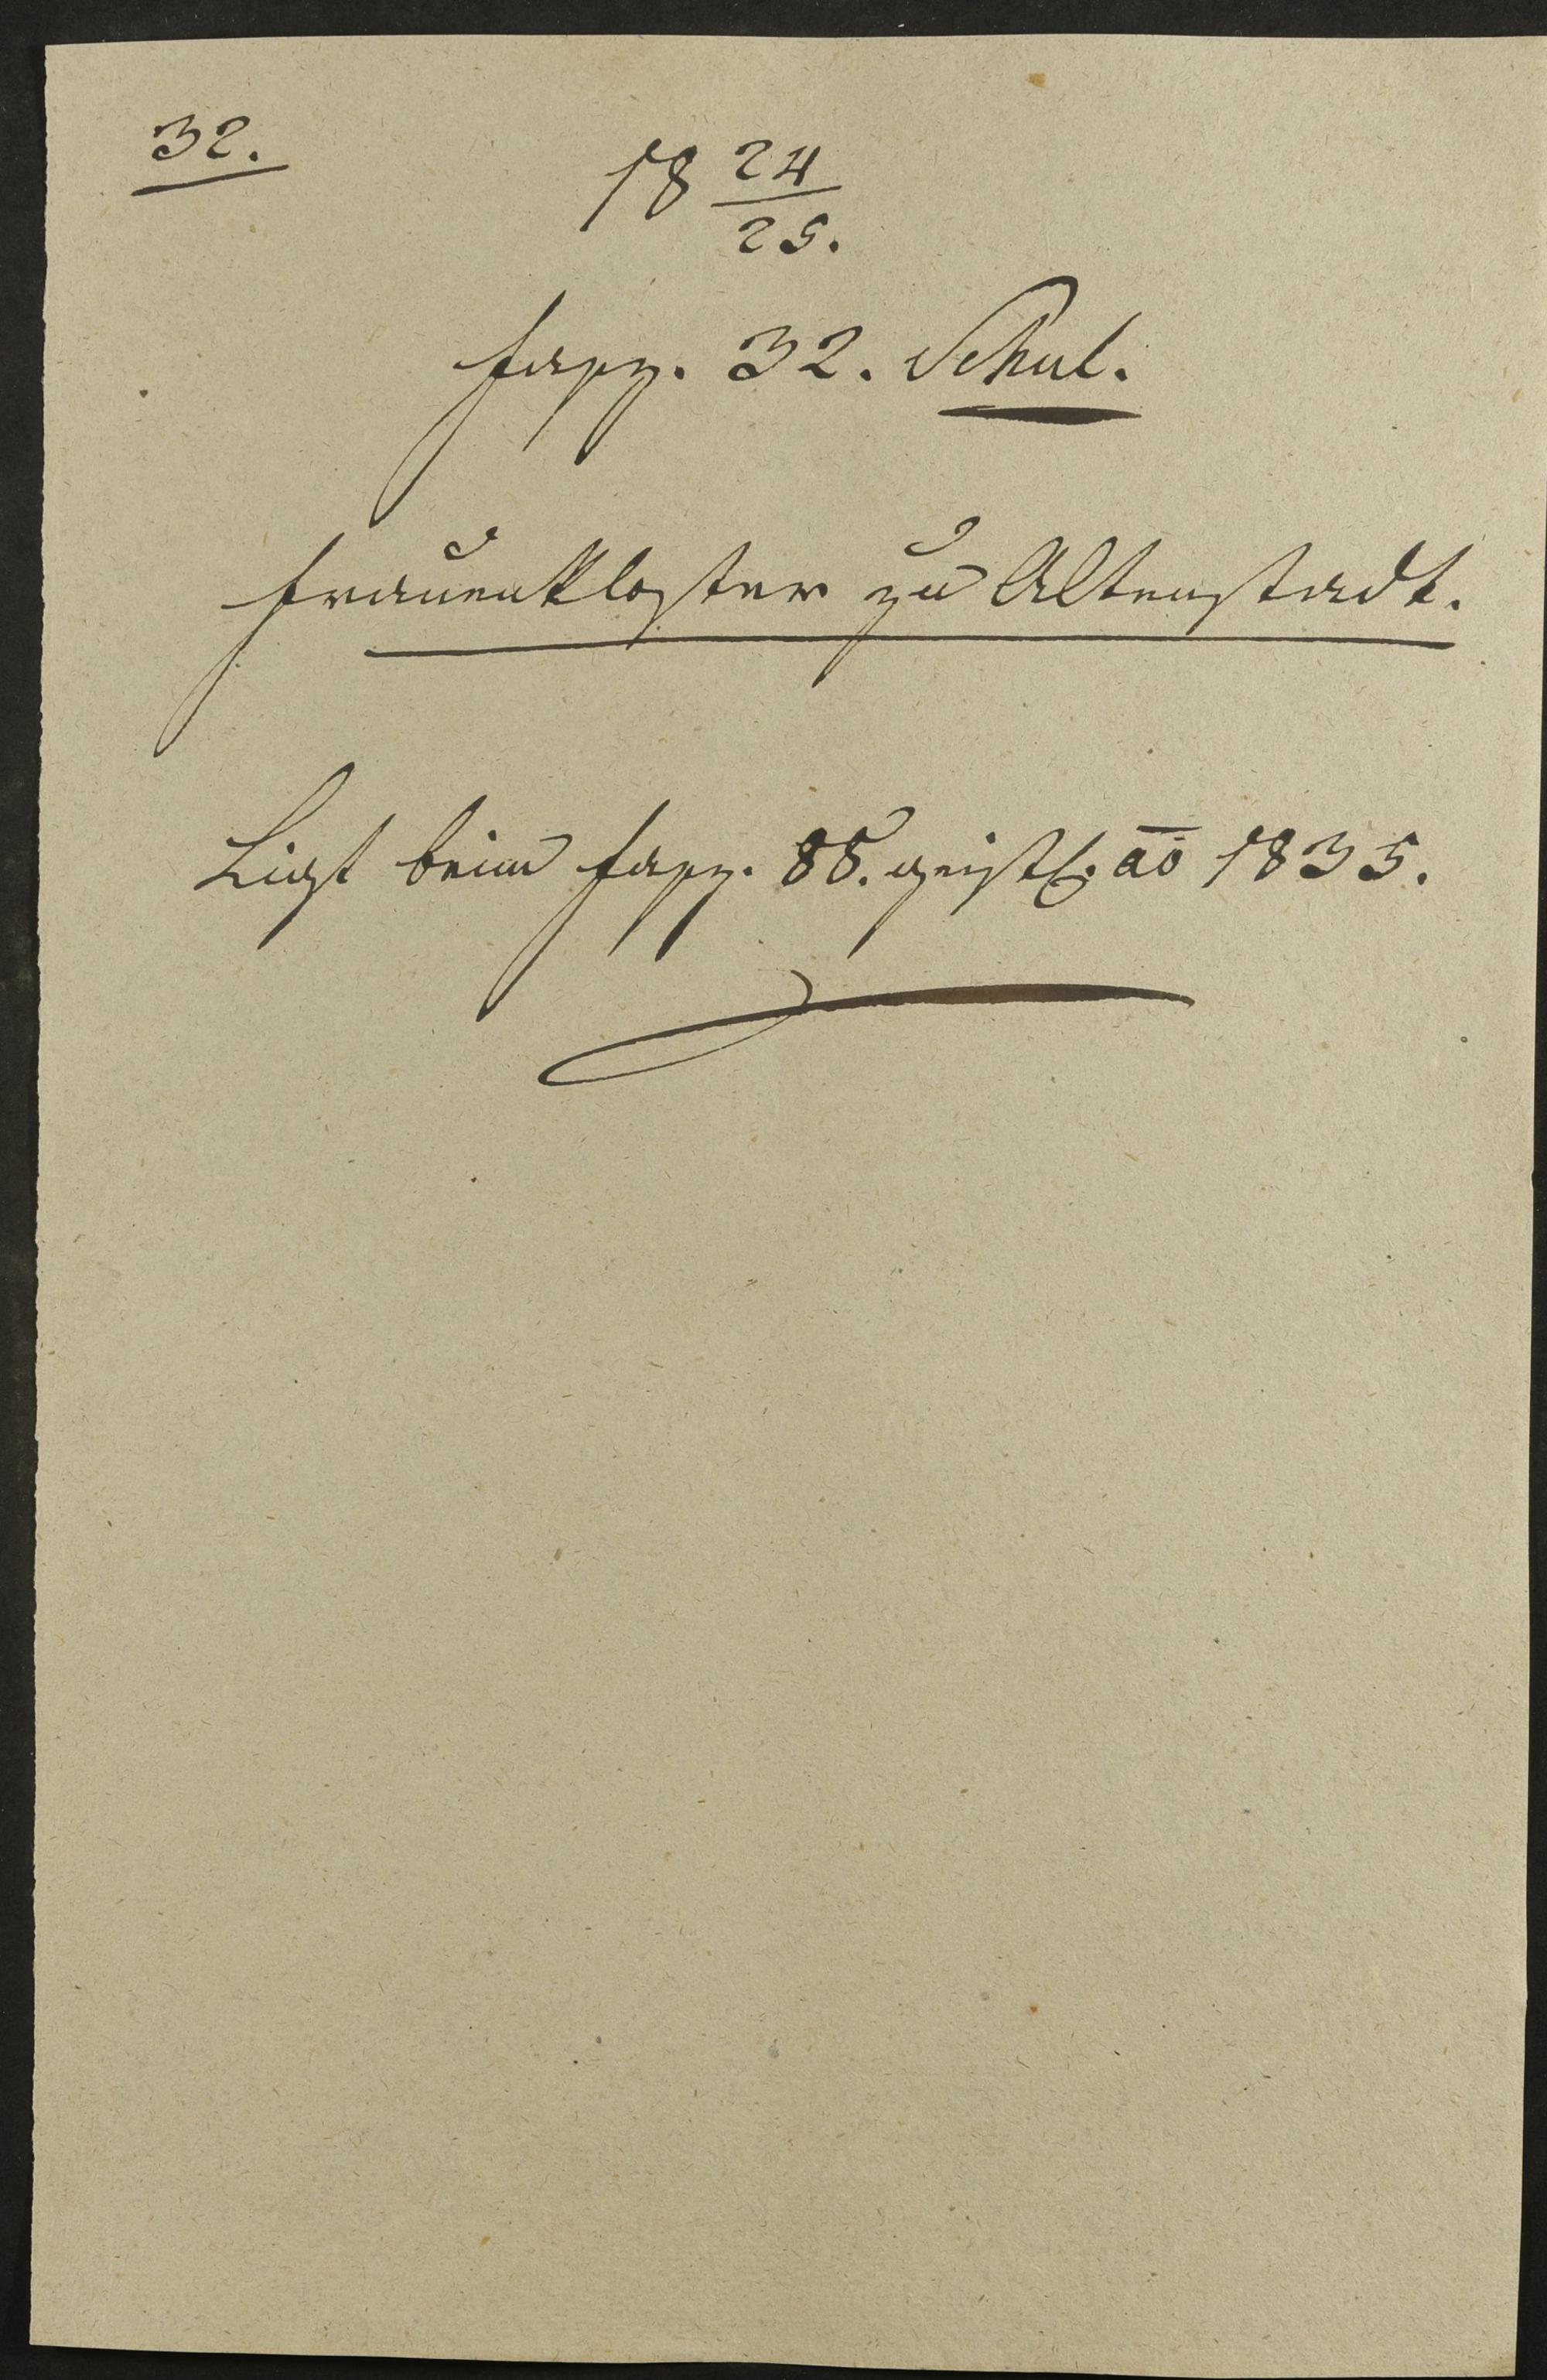 32.
18 24/25.
fasz. 32. Schul.
Frauenkloster zu Altenstadt.
Ligt beim fasz. 88. geistl. ao 1835.